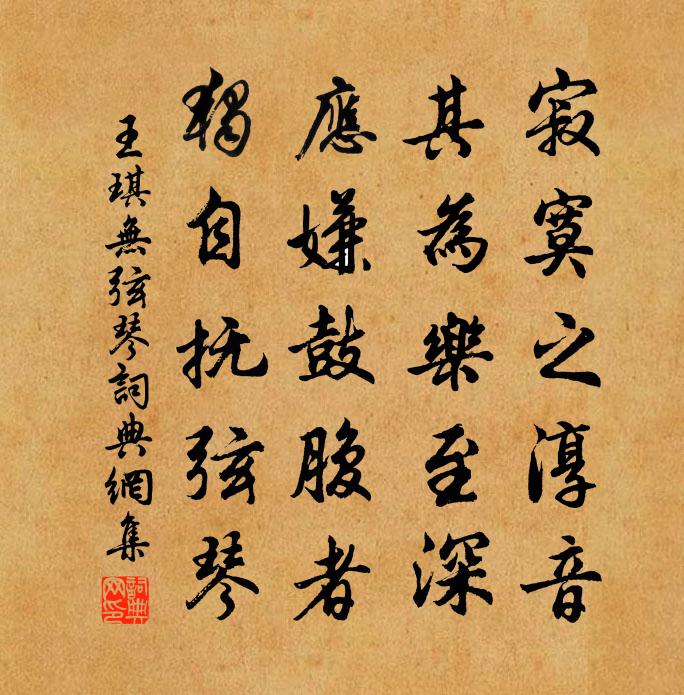 寂寞之淳音
其為樂至深
應嫌鼓腹者
獨自抚弦琴
王琪無弦琴詞典網集
詞典网印